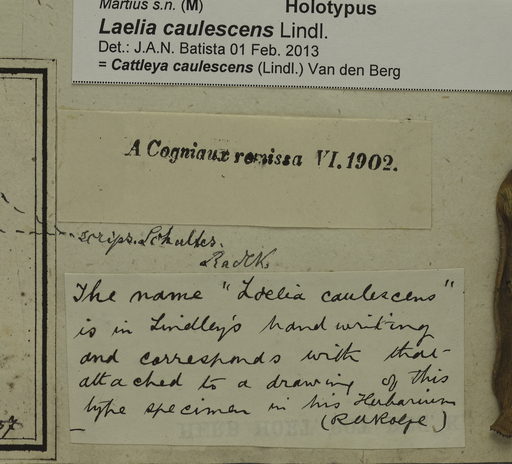 Martius s.n. (M) Holotypus
Laelia caulescens Lindl.
Det.: J.A.N. Batista 01 Feb. 2013
= Cattleya caulescens (Lindl.) Van den Berg
A Cogniaux remissa VI.1902.
scrips. Schultes.
Radlk.
The name "Loelia caulescens"
is in Lindley's handwriting
and corresponds with that
attached to a drawing of this
type specimen in his Herbarium
(RARolfe)